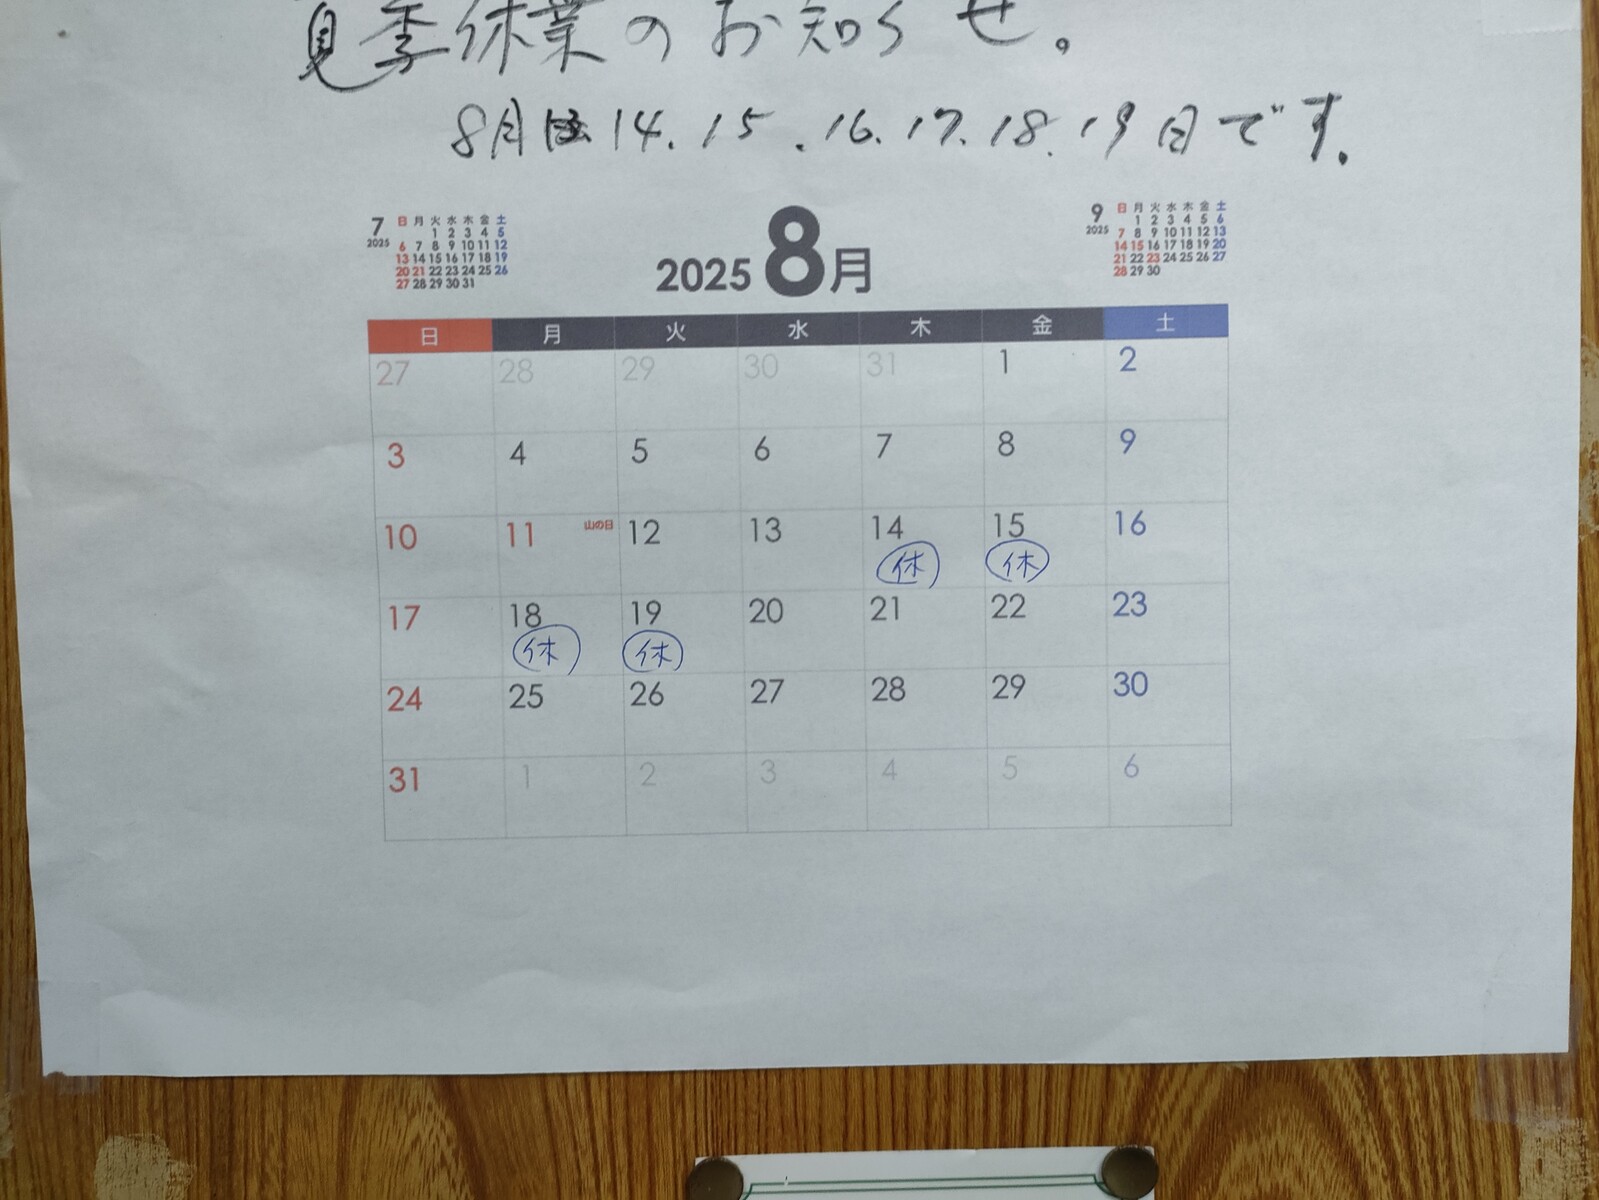 夏季休業のお知らせ。
8月は14.15.16.17.18.19日です.
7 2025
日 月 火 水 木 金 土
1 2 3 4 5
6 7 8 9 10 11 12
13 14 15 16 17 18 19
20 21 22 23 24 25 26
27 28 29 30 31
2025 8月
9 2025
日 月 火 水 木 金 土
1 2 3 4 5 6
7 8 9 10 11 12 13
14 15 16 17 18 19 20
21 22 23 24 25 26 27
28 29 30
日 月 火 水 木 金 土
27 28 29 30 31 1 2
3 4 5 6 7 8 9
10 11 山の日 12 13 14 15 16
休 休
17 18 19 20 21 22 23
休 休
24 25 26 27 28 29 30
31 1 2 3 4 5 6